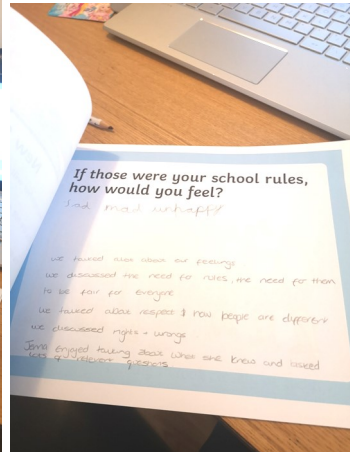 If those were your school rules,
how would you feel?
sad mad unhappy
we talked about our feelings
we discussed the need for rules, the need for them
to be fair for everyone
we talked about respect & how people are different
we discussed rights + wrongs
Jenna enjoyed talking about what she knew and asked
lots of relevent